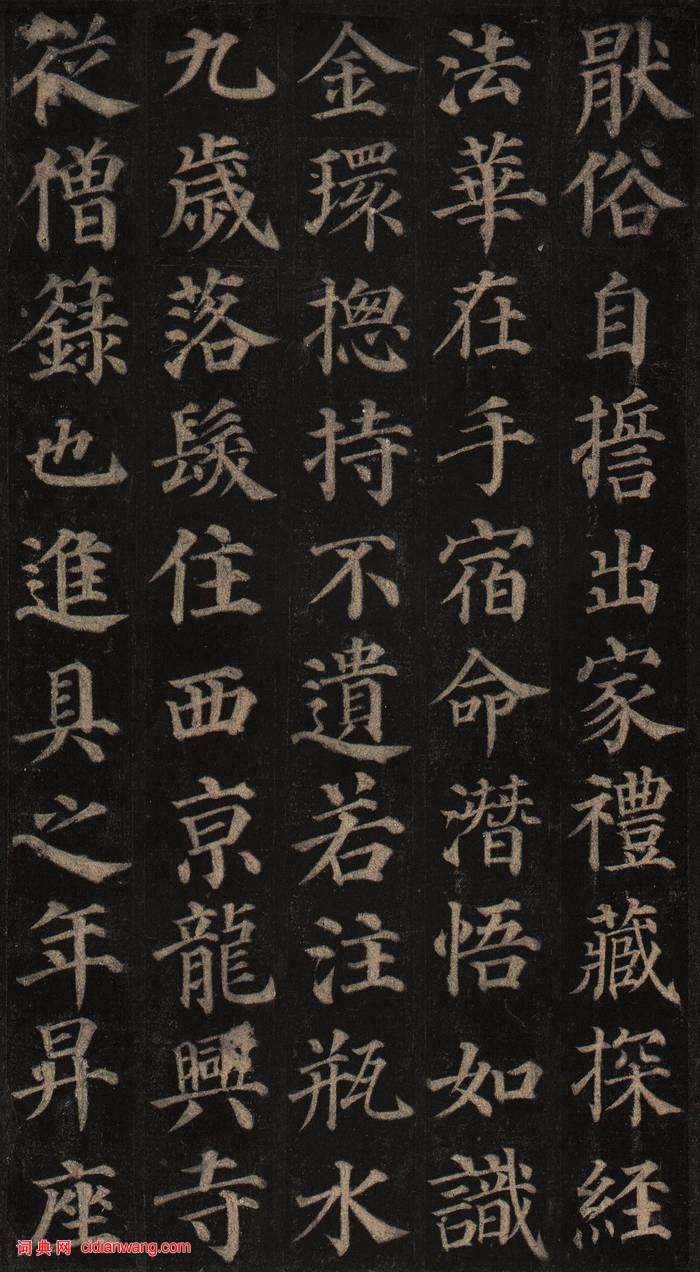 猒俗自誓出家禮藏探經
法華在手宿命潛悟如識
金環揔持不遺若注瓶水
九歲落髮住西京龍興寺
從僧籙也進具之年昇座
词典网 cidianwang.com